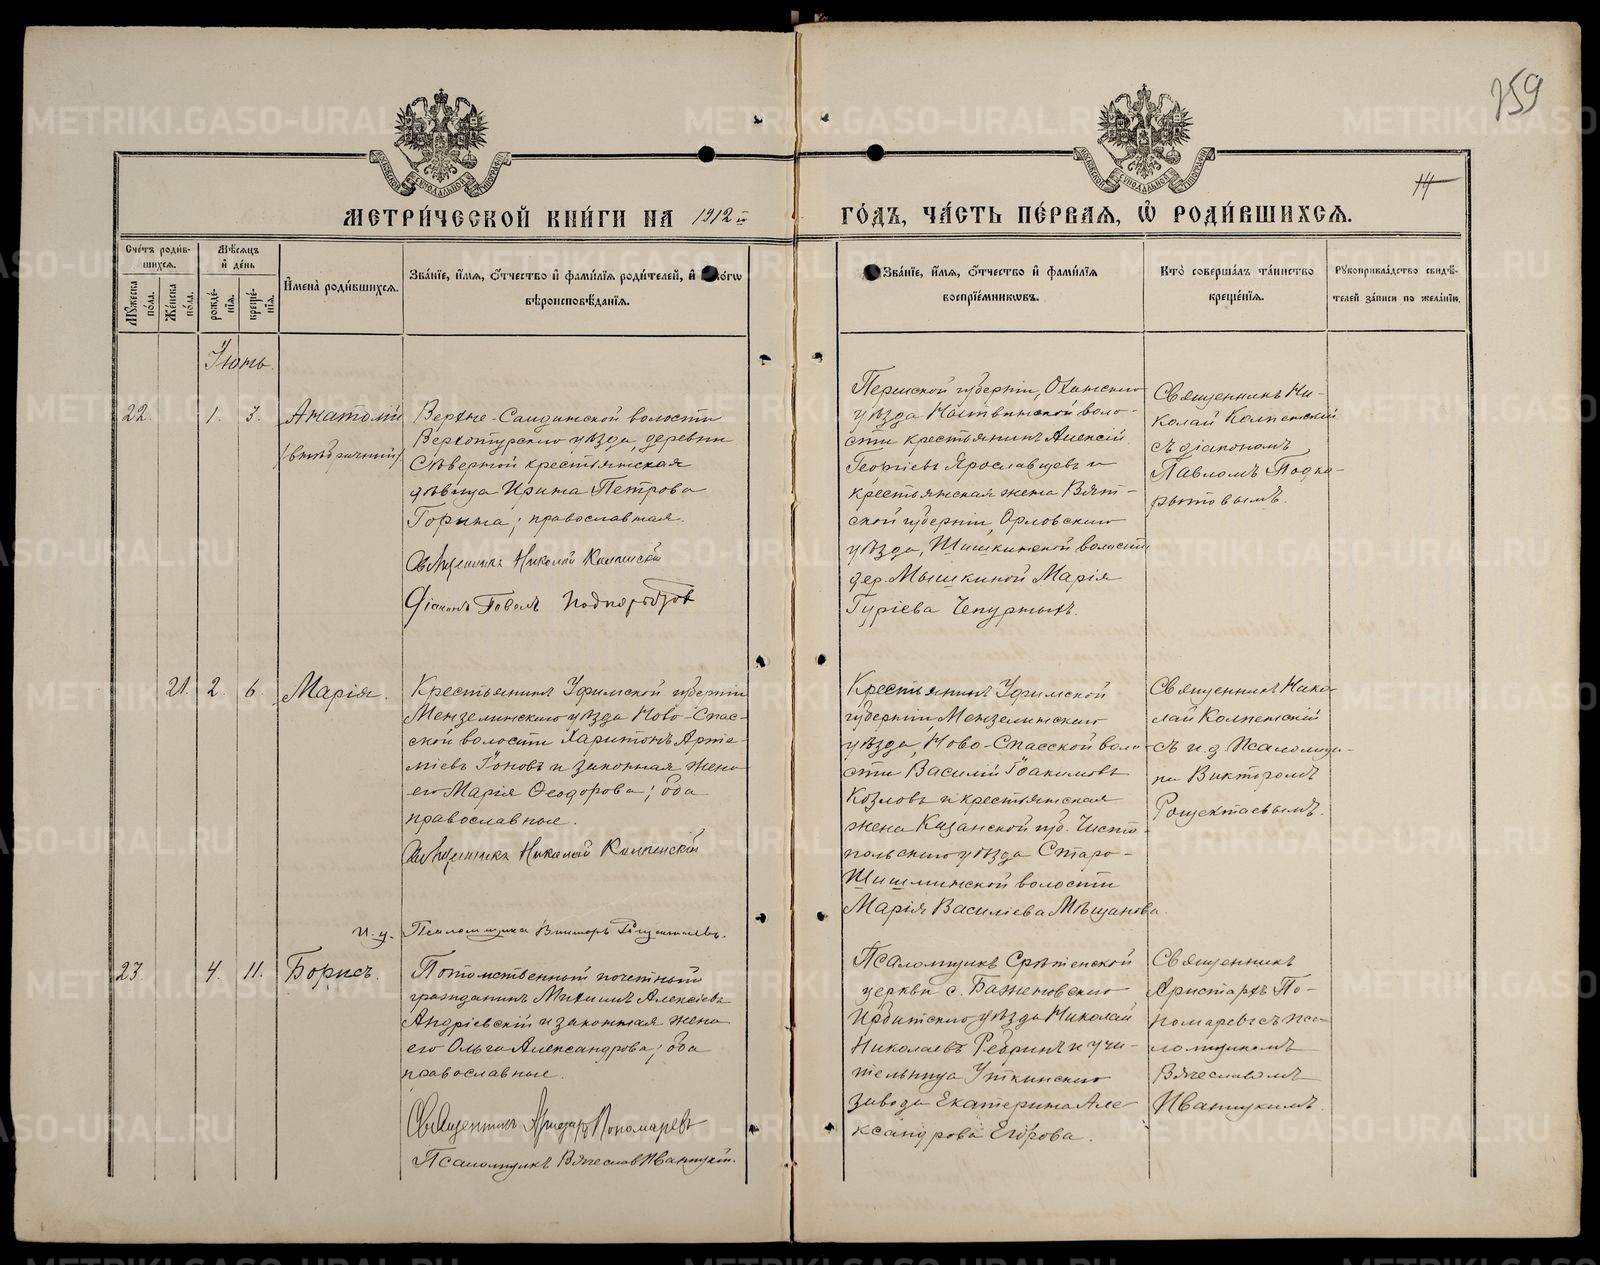 259
14
МЕТРИ́ЧЕСКОЙ КНИ́ГИ НА 1912й
ГО́ДЪ, ЧА́СТЬ ПЕ́РВАЯ, Ѡ҆ РОДИ́ВШИХСЯ.
Сче́тъ роди́в-
шихся.
Му́жеска
по́ла.
Же́нска
по́ла.
Мѣ́сяцъ
и҆ де́нь
рожде́-
нїя.
креще́-
нїя.
И҆мена̀ роди́вшихся.
Зва́нїе, и҆́мя, ѻ҆́тчество и҆ фами́лїя роди́телей, и҆
вѣроисповѣ́данїя.
Зва́нїе, и҆́мя, ѻ҆́тчество и҆ фами́лїя
воспрїе́мникѡвъ.
Кто̀ соверша́лъ та́инство
креще́нїя.
Рꙋкоприкла́дство свидѣ́-
телей за́писи по жела́нїю.
Іюнь.
22.
1.
3.
Анатолій
(внѣбрачный)
Верхне-Салдинской волости
Верхотурскаго уѣзда, деревни
Сѣверной крестьянская
дѣвица Ирина Петрова
Горына; православная.
Священникъ Николай Колпенскій
Діаконъ Павелъ Подкорытов
Пермской губерніи, Оханскаго
уѣзда Нытвинской воло-
сти крестьянинъ Алексій
Георгіевъ Ярославцевъ и
крестьянская жена Вят-
ской губерніи, Орловскаго
уѣзда, Шишкинской волости
дер. Мышкиной Марія
Гуріева Чепурныхъ.
Священникъ Ни-
колай Колпенскій
съ діакономъ
Павломъ Подко-
рытовымъ.
21.
2.
6.
Марія.
Крестьянинъ Уфимской губерніи
Мензелинскаго уѣзда Ново-Спас-
ской волости Харитонъ Арте-
міевъ Іоновъ и законная жена
его Марія Ѳеодорова; оба
православные.
Священникъ Николай Колпенскій
и.д. Псаломщика Викторъ Рощектаевъ.
Крестьянинъ Уфимской
губерніи Мензелинскаго
уѣзда, Ново-Спасской воло-
сти Василій Іоакимовъ
Козловъ и крестьянская
жена Казанской губ. Чисто-
польскаго уѣзда Старо-
Шишлинской волости
Марія Василіева Мѣщанова.
Священникъ Нико-
лай Колпенскій
съ и.д. Псаломщи-
ка Викторомъ
Рощектаевымъ.
23.
4.
11.
Борисъ.
Потомственный почетный
гражданинъ Михаилъ Алексіевъ
Андріевскій и законная жена
его Ольга Александрова; оба
православные.
Священникъ Аристархъ Пономаревъ
Псаломщикъ Вячеславъ Иваницкій.
Псаломщикъ Срѣтенской
церкви с. Баженовскаго
Ирбитскаго уѣзда Николай
Николаевъ Ребринъ и учи-
тельница Уткинскаго
завода Екатерина Але-
ксандрова Егорова.
Священникъ
Аристархъ По-
номаревъ съ пса-
ломщикомъ
Вячеславомъ
Иваницкимъ.
METRIKI.GASO-URAL.RU